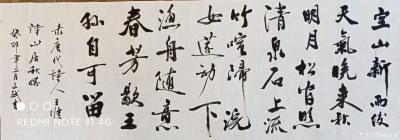 空山新雨後
天氣晚来秋
明月松間照
清泉石上流
竹喧歸浣
女蓮動下
漁舟随意
春芳歇王
孫自可留
录唐代詩人王維
詩山居秋暝
癸卯年三月
REDMI NOTE 11 4G